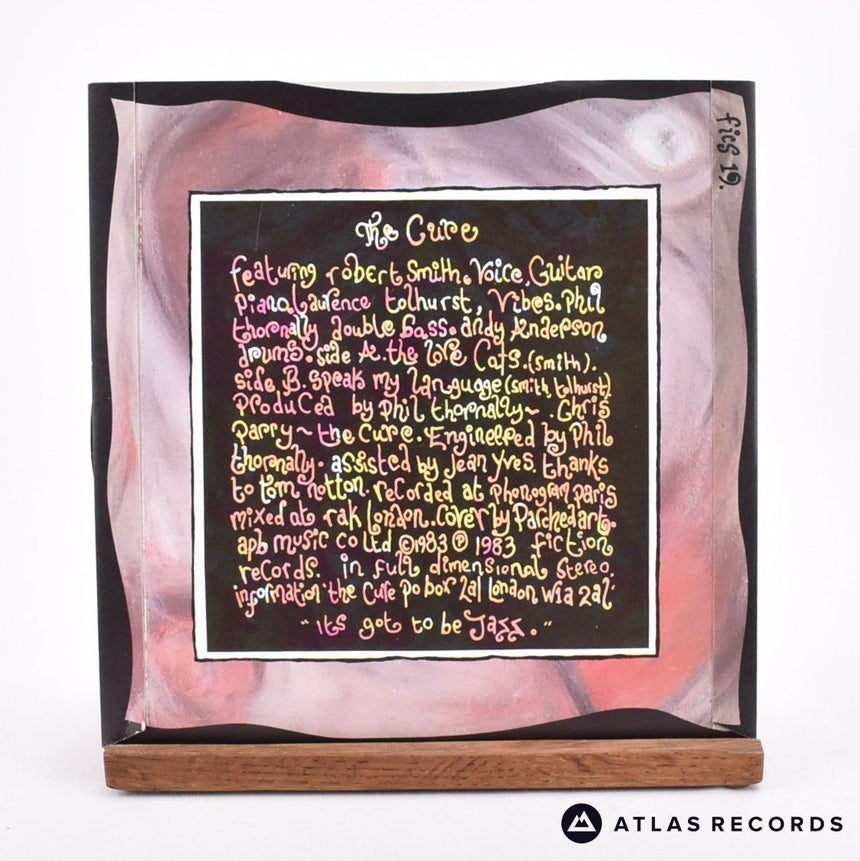 fics 19.
The Cure
featuring robert Smith. Voice, Guitar
piano. Laurence tolhurst, Vibes. Phil
thornally double bass. andy Anderson
drums. side A. the love Cats. (smith).
side. B. speak my language (smith tolhurst)
Produced by phil thornally~. Chris
parry~ the Cure. Engineered by Phil
thornally. assisted by Jean Yves. thanks
to tom notton. recorded at phonogram paris
mixed at rak London. Cover by Parchedart.
apb music co ltd ©1983 ℗ 1983 fiction
records. in full dimensional stereo.
information the Cure po box 2al London W1a 2al
"its got to be Jazz."
ATLAS RECORDS